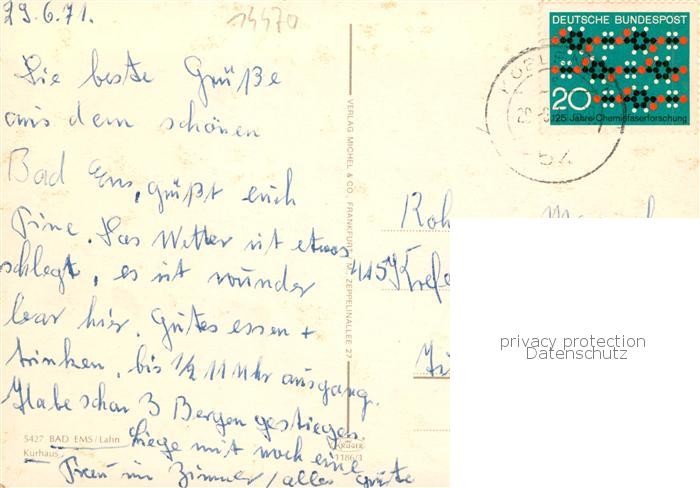 29.6.71.
14470
Die beste Grüße
aus dem schönen
Bad Ems, grüßt euch
Tine. Das Wetter ist etwas
schlegt, es ist wunder
bar hier. Gutes essen +
trinken, bis 1/2 11 Uhr ausgang.
Habe schon 3 Bergen gestiegen
Liege mit noch eine
Frau im Zimmer / alles gute
5427 BAD EMS/Lahn
Kurhaus
VERLAG MICHEL & CO. FRANKFURT/M. ZEPPELINALLEE 27
KRÜGER
1186/1
DEUTSCHE BUNDESPOST
20
125 Jahre Chemiefaserforschung
54
415 Krefe
privacy protection
Datenschutz